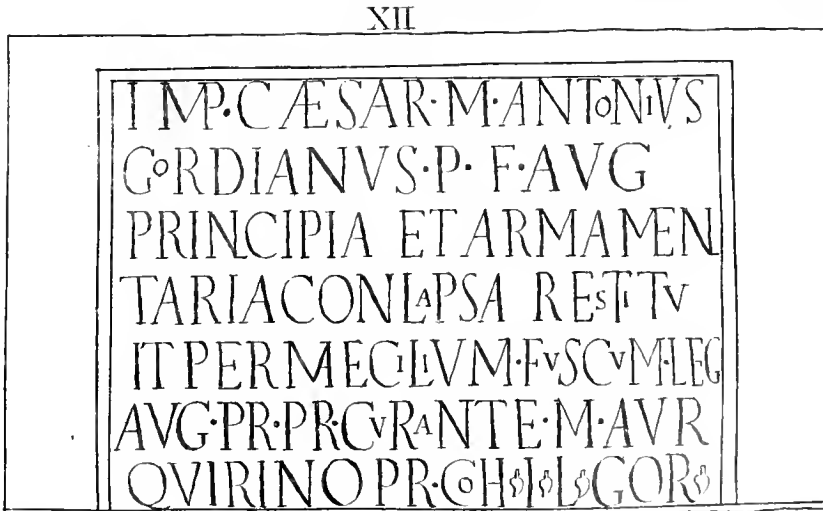 XII
IMP·CÆSAR·M·ANTONIVS
GORDIANVS·P·F·AVG
PRINCIPIA ET ARMAMEN
TARIA CONLAPSA RESTITV
IT PER MECILIVM·FVSCVM·LEG
AVG·PR·PR·CVRANTE·M·AVR
QVIRINO PR·COH·I·L·GOR·